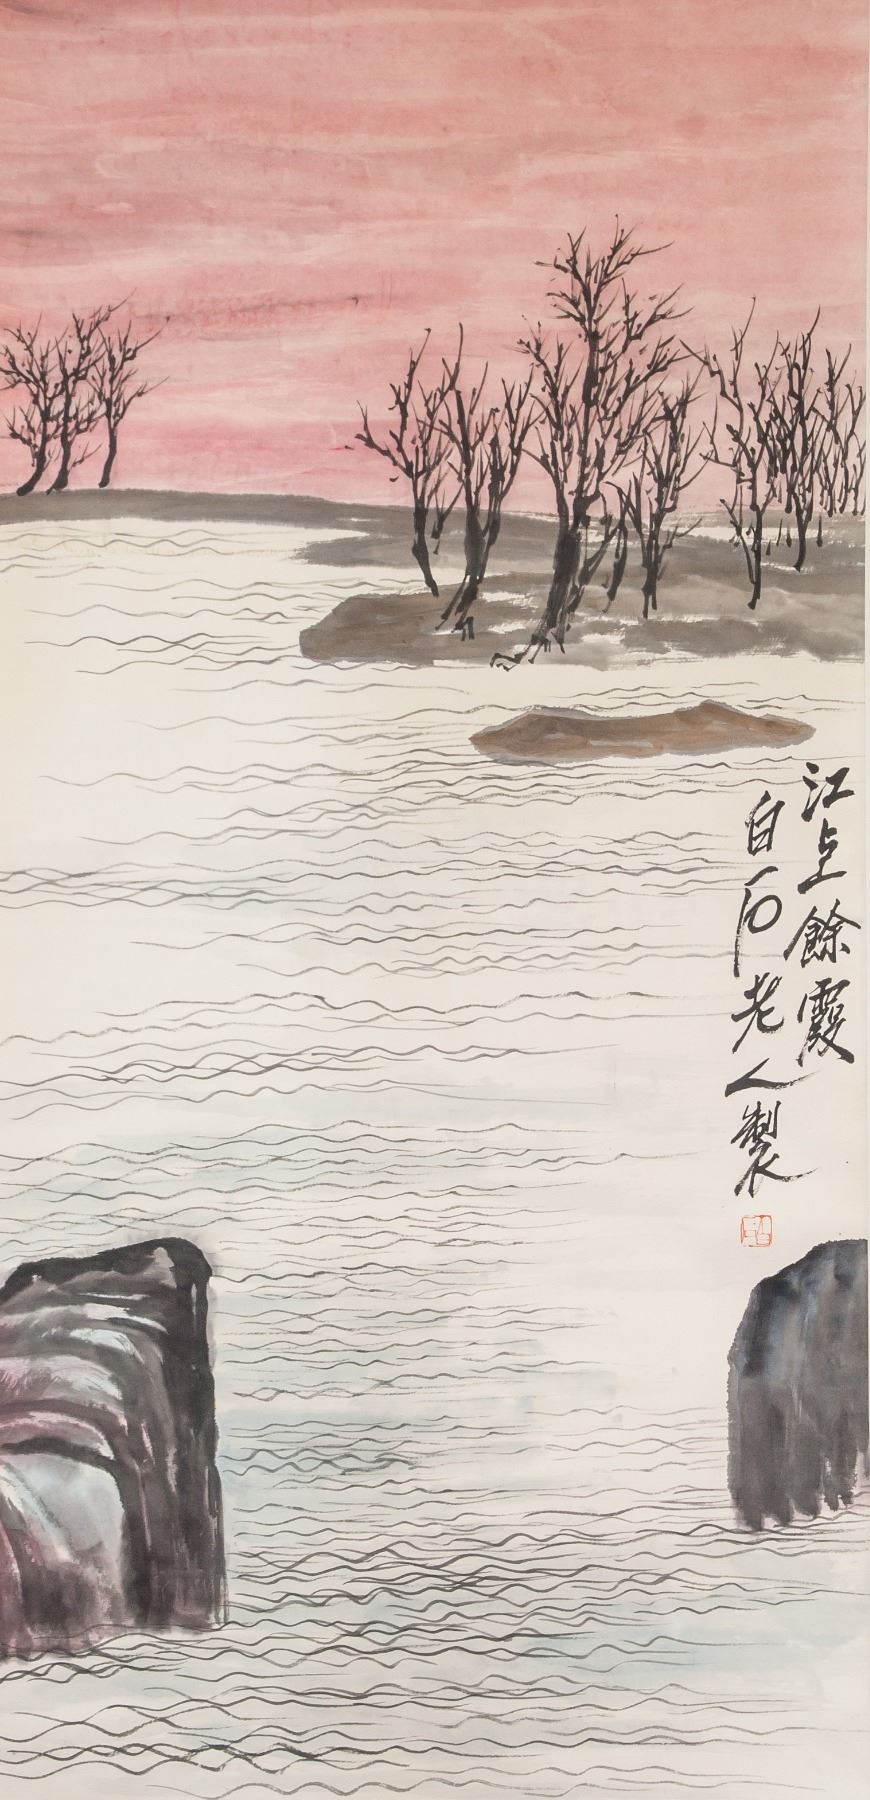 江上餘霞
白石老人製